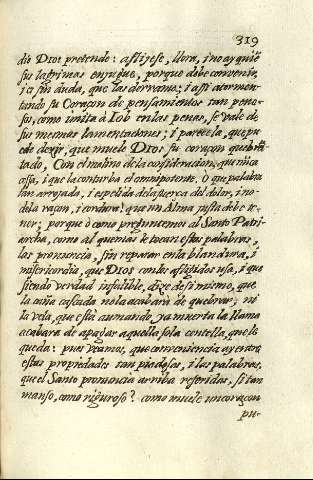 319
dio DIOS pretende: aflijese, llora, i no ay quiē
sus lagrimas enjugue, porque debe convenir,
i es sin duda, que las derrama; i assi atormen-
tando su Coraçon de pensamientos tan peno-
sos, como imita à Iob en las penas, se vale de
sus mesmos lamentaciones; i parecela, que pu-
ede dezir, que muele DIOS su coraçon quebrā
tado, Con el molino de la consideracion, que nūca
cessa, i que la conturba el omnipotente. O que palabra
tan arrojada, i espelida de la fuerça del dolor, i no
de la raçon, i cordura! que un Alma justa debe te-
ner; porque ò como preguntemos al Santo Patri-
archa, como al que mas le tocan estas palabras,
las pronunció, sin reparar en la blandura, i
misericordia, que DIOS con los afligidos usa, i que
siendo verdad infalible, dize de si mismo, que
la caña cascada no la acabarà de quebrar; ni
la vela, que està aumando, ya muerta la llama
acabara de apagar aquella sola centella, que le
queda: pues veamos, que conveniencia ay entre
estas propiedades tan piadosas, i las palabras,
que el Santo pronuncia arriba referidas, si tan
manso, como riguroso? como muele un coraçon
pu-